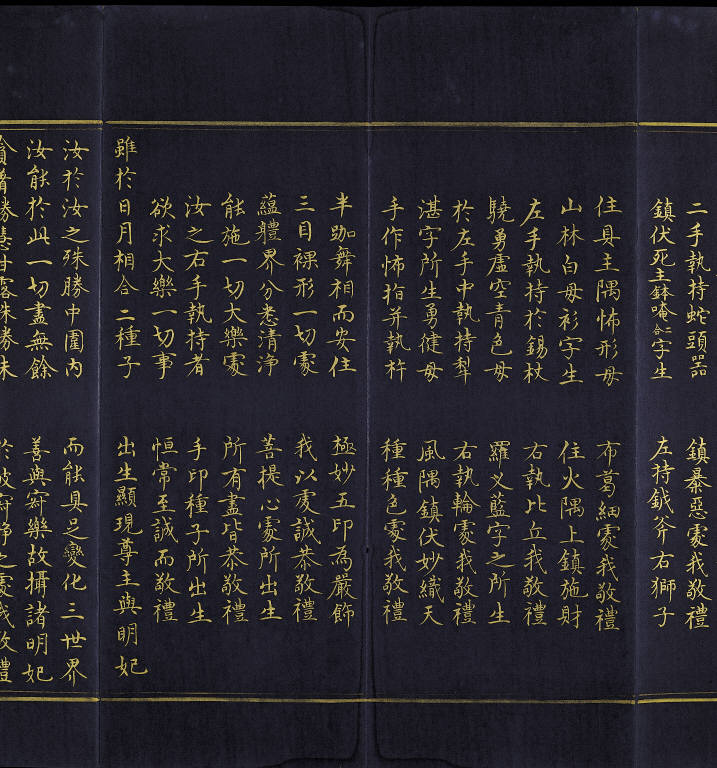 二手執持蛇頭器　鎮暴惡處我敬禮
鎮伏死主鉢唵合二字生　左持鉞斧右獅子
住具主隅怖形母　布葛細處我敬禮
山林白母衫字生　住火隅上鎮施財
左手執持於錫杖　右執比丘我敬禮
驍勇虛空青色母　羅义藍字之所生
於左手中執持犁　右執輪處我敬禮
湛字所生勇健母　風隅鎮伏妙織天
手作怖指并執杵　種種色處我敬禮
半跏舞相而安住　極妙五印為嚴飾
三目裸形一切處　我以虔誠恭敬禮
蘊體界分悉清淨　菩提心處所出生
能施一切大樂處　所有盡皆恭敬禮
汝之右手執持者　手印種子所出生
欲求大樂一切事　恒常至誠而敬禮
雖於日月相合二種子　出生顯現尊主與明妃
汝於汝之殊勝中圍內　而能具足變化三世界
汝能於此一切盡無餘　善與寂樂故攝諸明妃
勝慧甘露殊勝味　於彼寂靜之處我敬禮